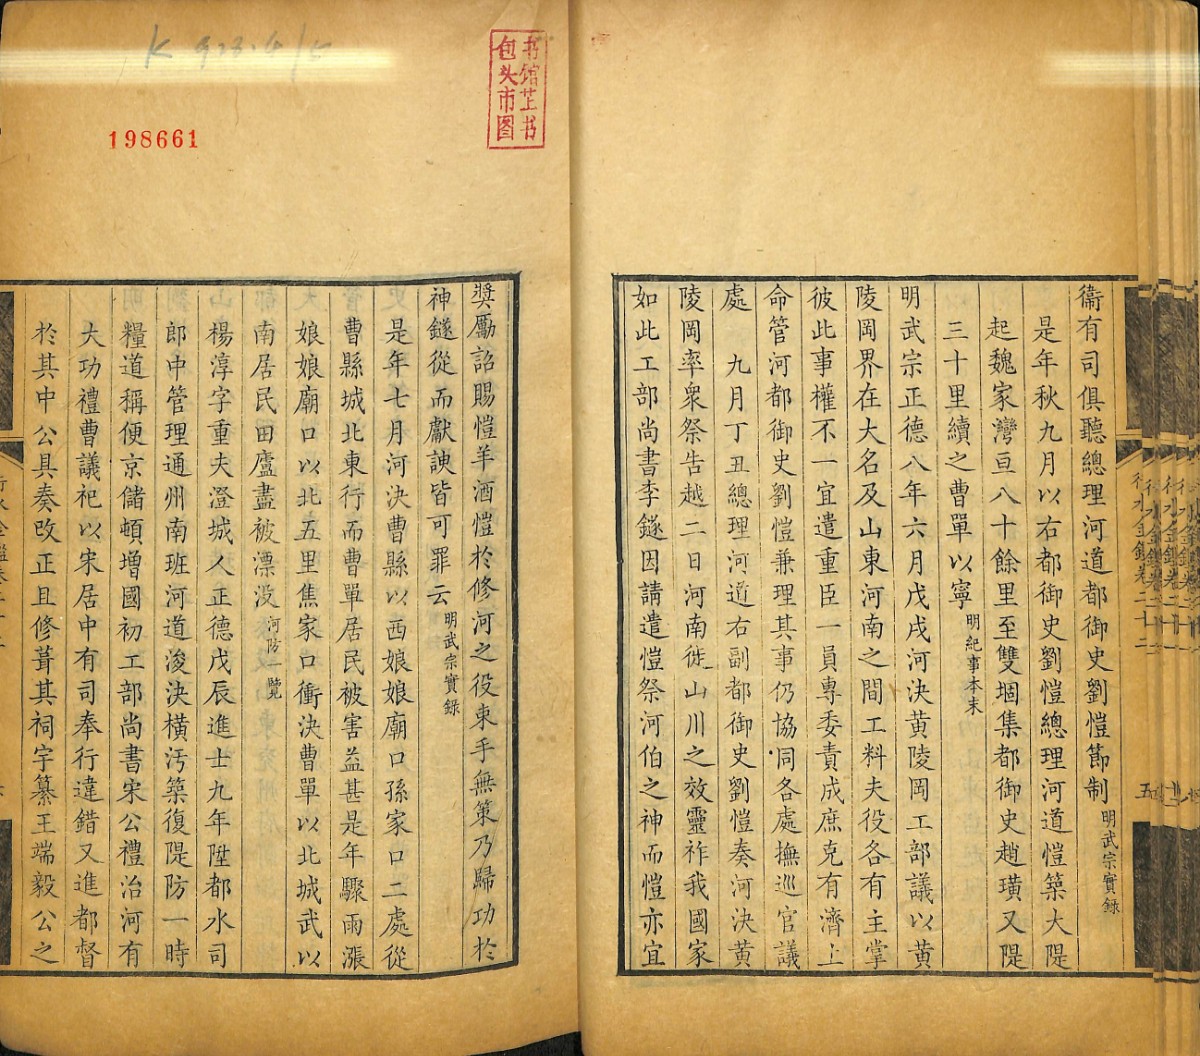 衞有司俱聽總理河道都御史劉愷節制 明武宗實錄
是年秋九月以右都御史劉愷總理河道愷築大隄
起魏家灣亘八十餘里至雙堌集都御史趙璜又隄
三十里續之曹單以寧 明紀事本末
明武宗正德八年六月戊戌河決黃陵岡工部議以黃
陵岡界在大名及山東河南之間工料夫役各有主掌
彼此事權不一宜遣重臣一員專委責成庶克有濟上
命管河都御史劉愷兼理其事仍協同各處撫巡官議
處 九月丁丑總理河道右副都御史劉愷奏河決黃
陵岡率衆祭告越二日河南徙山川之效靈祚我國家
如此工部尚書李鐩因請遣愷祭河伯之神而愷亦宜
獎勵詔賜愷羊酒愷於修河之役束手無策乃歸功於
神鐩從而獻諛皆可罪云 明武宗實錄
是年七月河決曹縣以西娘娘廟口孫家口二處從
曹縣城北東行而曹單居民被害益甚是年驟雨漲
娘娘廟口以北五里焦家口衝決曹單以北城武以
南居民田廬盡被漂没 河防一覽
楊淳字重夫澄城人正德戊辰進士九年陞都水司
郎中管理通州南班河道浚決橫汚築復隄防一時
糧道稱便京儲頓增國初工部尚書宋公禮治河有
大功禮曹議祀以宋居中有司奉行違錯又進都督
於其中公具奏改正且修葺其祠宇纂王端毅公之
行水金鑑卷二十二
五
包头市图
书馆芷书
198661
K 928.5/5